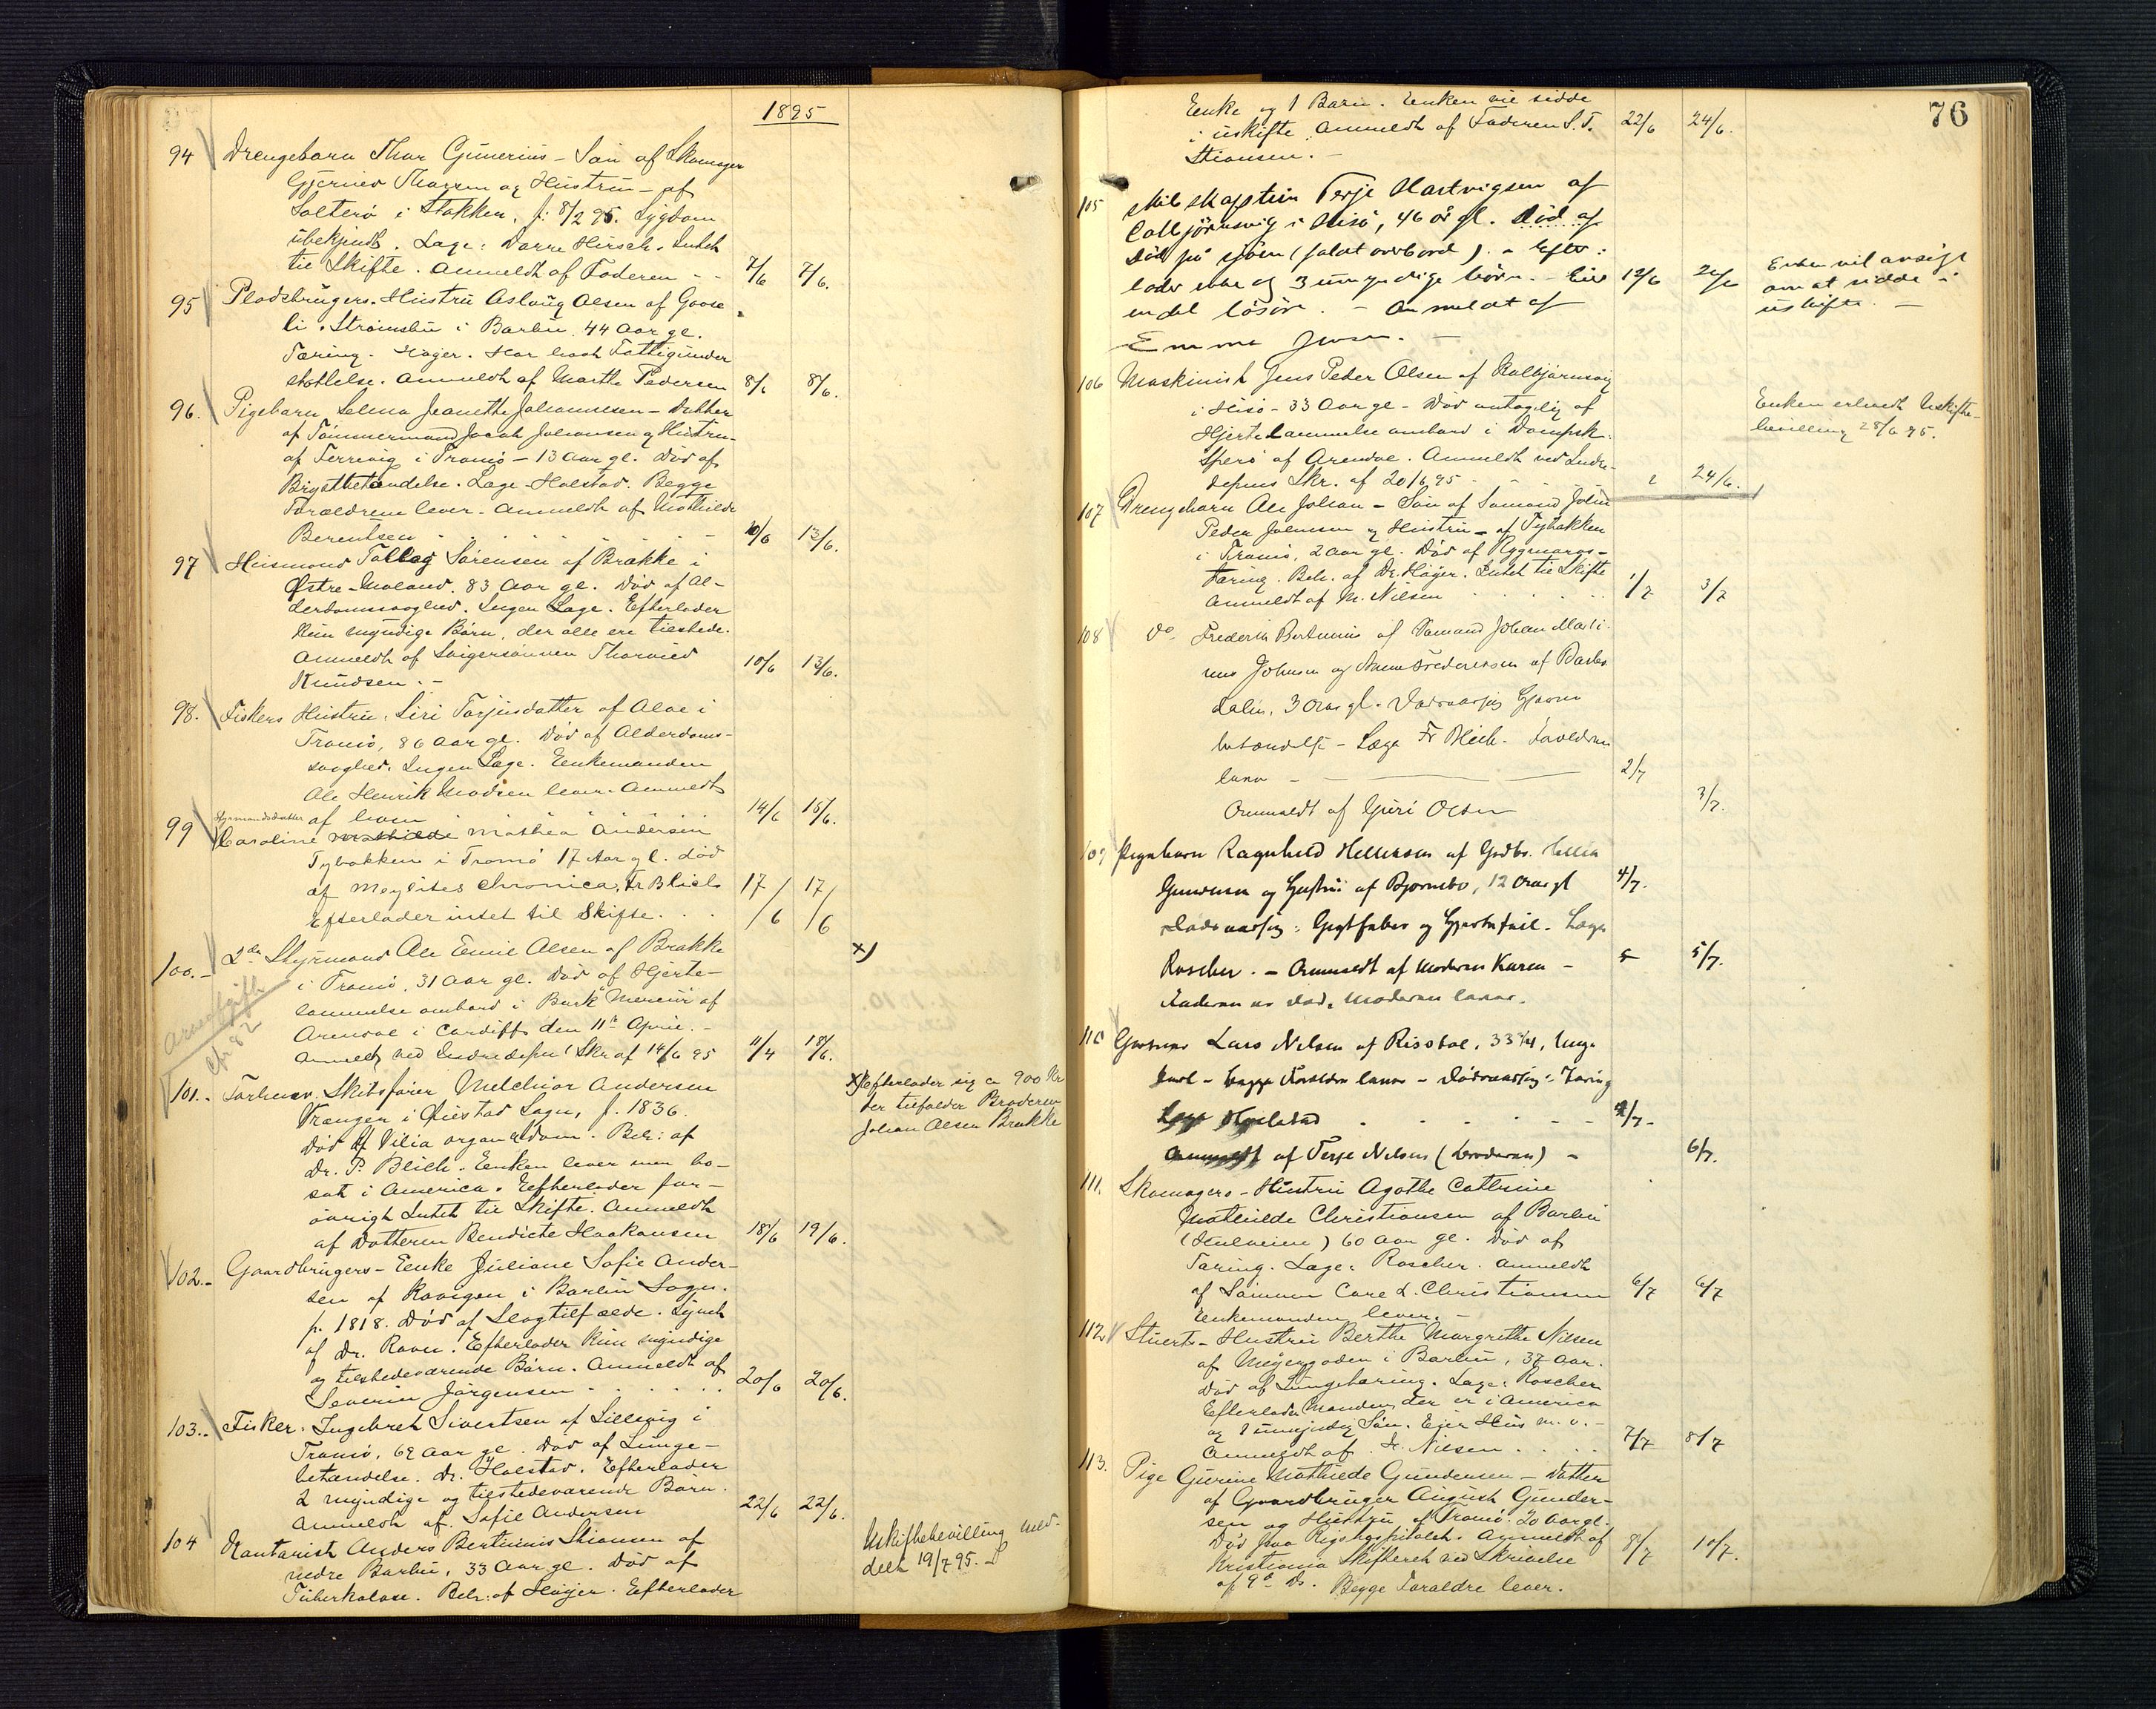 1895
94 Drengebarn Thor Gunerius - Søn af Skomager
Gjerulev Thorsen og Hustru - af
Salterø i Stokken, f. 8/2 95. Sygdom
ubekjendt. Læge: Dørre Hirsch. Intet
til Skifte. Anmeldt af Faderen - - 7/6 7/6.
95 Pladsbrugers Hustru Aslaug Olsen af Goose
li. Strømsbu i Barbu. 44 Aar gl.
Tæring. Höyer. Har havt Fattigunder
støttelse. Anmeldt af Marthe Pedersen 8/6 8/6.
96. Pigebarn Selma Jeanette Johannesen - Datter
af Tømmermand Jacob Johansen og Hustru
af Færvig i Tromø - 13 Aar gl. Død af
Brystbetændelse. Læge Holstad. Begge
Forældrene lever. Anmeldt af Mathilde
Berentsen 10/6 13/6.
97 Huusmand Tallag Sørensen af Brække i
Østre-Moland. 83 Aar gl. Død af Al-
derdomssvaghed. Ingen Læge. Efterlader
kun myndige Børn, der alle ere tilstede.
Anmeldt af Svigersønnen Thorvald
Knudsen. - 10/6 13/6.
98. Fiskers Hustru. Siri Torjusdatter af Alve i
Tromø, 86 Aar gl. Død af Alderdoms-
svaghed. Ingen Læge. Enkemanden
Ole Henrik Madsen lever. Anmeldt
af ham 14/6 15/6.
99 Styrmandsdatter
Caroline Mathea Andersen
Tybakken i Tromø 17 Aar gl. død
af Meylites chronica, Fr Blich 17/6 17/6
Efterlader intet til Skifte. . .
100. - 2den Styrmand Ole Emil Olsen af Brække x)
i Tromø, 31 Aar gl. Død af Hjerte-
lammelse ombord i Bark Mercur af
Arendal i Cardiff den 11te April. -
Anmeldt ved Indredeps Skr af 14/6 95 11/4 18/6.
Arveafgift
101. - Forhenv. Skibsfører Melchior Andersen
Vrangen i Øiestad Sogn, f. 1836.
Død af Vilia organ cordum. Beh: af
Dr. P. Blich. Enken lever men bo-
sat i America. Efterlader for-
øvrigt Intet til Skifte. Anmeldt
af Datteren Bendicte Haakonsen 18/6 19/6.
x) Efterlader sig ca 900 Kr
der tilfalder Broderen
Johan Olsen Brække
102. - Gaardbrugers - Enke Juliane Sofie Ander-
sen af Ravigen i Barbu Sogn.
f. 1818. Død af Slagtilfælde. Synet
af Dr. Raven. Efterlader kun myndige
og tilstedeværende Børn. Anmeldt af
Severin Jørgensen . . . . . 20/6 20/6.
103. Fisker. Ingebret Sivertsen af Lillevig i
Tromø, 62 Aar gl. Død af Lunge-
betændelse. Dr. Holstad. Efterlader
2 myndige og tilstedeværende Børn.
Anmeldt af Sofie Andersen 22/6 22/6.
104 Kantorist Anders Bertinius Stiansen af
nedre Barbu, 33 Aar gl. Død af
Tuberkulose. Beh: af Höyer. Efterlader
Uskiftebevilling med-
delt 19/7 95.
76
Enke og 1 Barn. Enken vil sidde
i uskifte. Anmeldt af Faderen S. T.
Stiansen. - 22/6 24/6.
105 skibskaptein Terje Hartvigsen af
Colbjørnsvig i Hisø, 46 år gl.
Død på sjøen (faldt overbord). - Efter:
lader enke og 3 umyndige børn. - Eier 12/6 24/6
en del løsøre. - Anmeldt af
Emma Jensen. -
Enken vil ansøge
om at sidde i
uskifte. -
106 Maskinist Jens Peder Olsen af Kolbjørnsvig
i Hisø - 33 Aar gl - Død antagelig af
Hjertelammelse ombord i Dampsk.
Sperø af Arendal. Anmeldt ved Indre-
depens Skr. af 20/6 95 - - 24/6.
Enken erholdt Uskifte-
bevilling 28/6 95.
107 Drengebarn Ole Johan - Søn af Sømand John
Peder Johnsen og Hustru - af Tybakken
i Tromø, 2 Aar gl. Død af Rygmarvs-
tæring. Beh. af Dr. Höyer. Intet til Skifte
Anmeldt af M. Nilsen . . . . 1/7 3/7
108 Do. Frederik Bertinius af Sømand Johan Marti-
nus Johnsen og Anna Fredericsen af Barbo
dalen, 3 Aar gl. Dødsaarsag Hjerne
betændelse - Læge Fr Blich. Forældrene
lever - 2/7
Anmeldt af Guri Olsen 3/7.
109 Pigebarn Ragnhild Hellersen af Grdbr. Heller
Gundersen og Hustru af Bjørnebo, 12 Aar gl 4/7.
Dødsaarsag: Gigtfeber og Hjertefeil. Læge
Roscher. - Anmeldt af Moderen Karen - 5/7.
Faderen er død, Moderen lever.
110 Lars Nilsen af Risdal, 33 3/4, Unge
karl - begge Forældre lever - Dødsaarsag: Tæring
Læge Holstad . . . - - 4/7 -
Anmeldt af Terje Nilsen (broderen) - 6/7.
111. Skomagers - Hustru Agathe Cathrine
Mathilde Christiansen af Barbu
60 Aar gl. Død af
Tæring. Læge: Roscher. Anmeldt
af Sønnen Carl L. Christiansen 6/7 6/7
Enkemanden lever. -
112 Stuerts - Hustru Berthe Margrethe Nilsen
af Meyergaden i Barbu, 37 Aar.
Død af Lungetæring. Læge: Roscher
Efterlader Manden, der er i America
og 1 umyndig Søn. Ejer Hus m. v. -
Anmeldt af . H. Nilsen . . . . 7/7 8/7
113. Pige Gurine Mathilde Gundersen - Datter
af Gaardbruger August Gunder-
sen og Hustru af Tromø. 20 Aar gl.
Død paa Rigshospitalet. Anmeldt af
Kristiania Skifteret ved Skrivelse 8/7 10/7.
af 9de Ds. Begge Forældre lever.